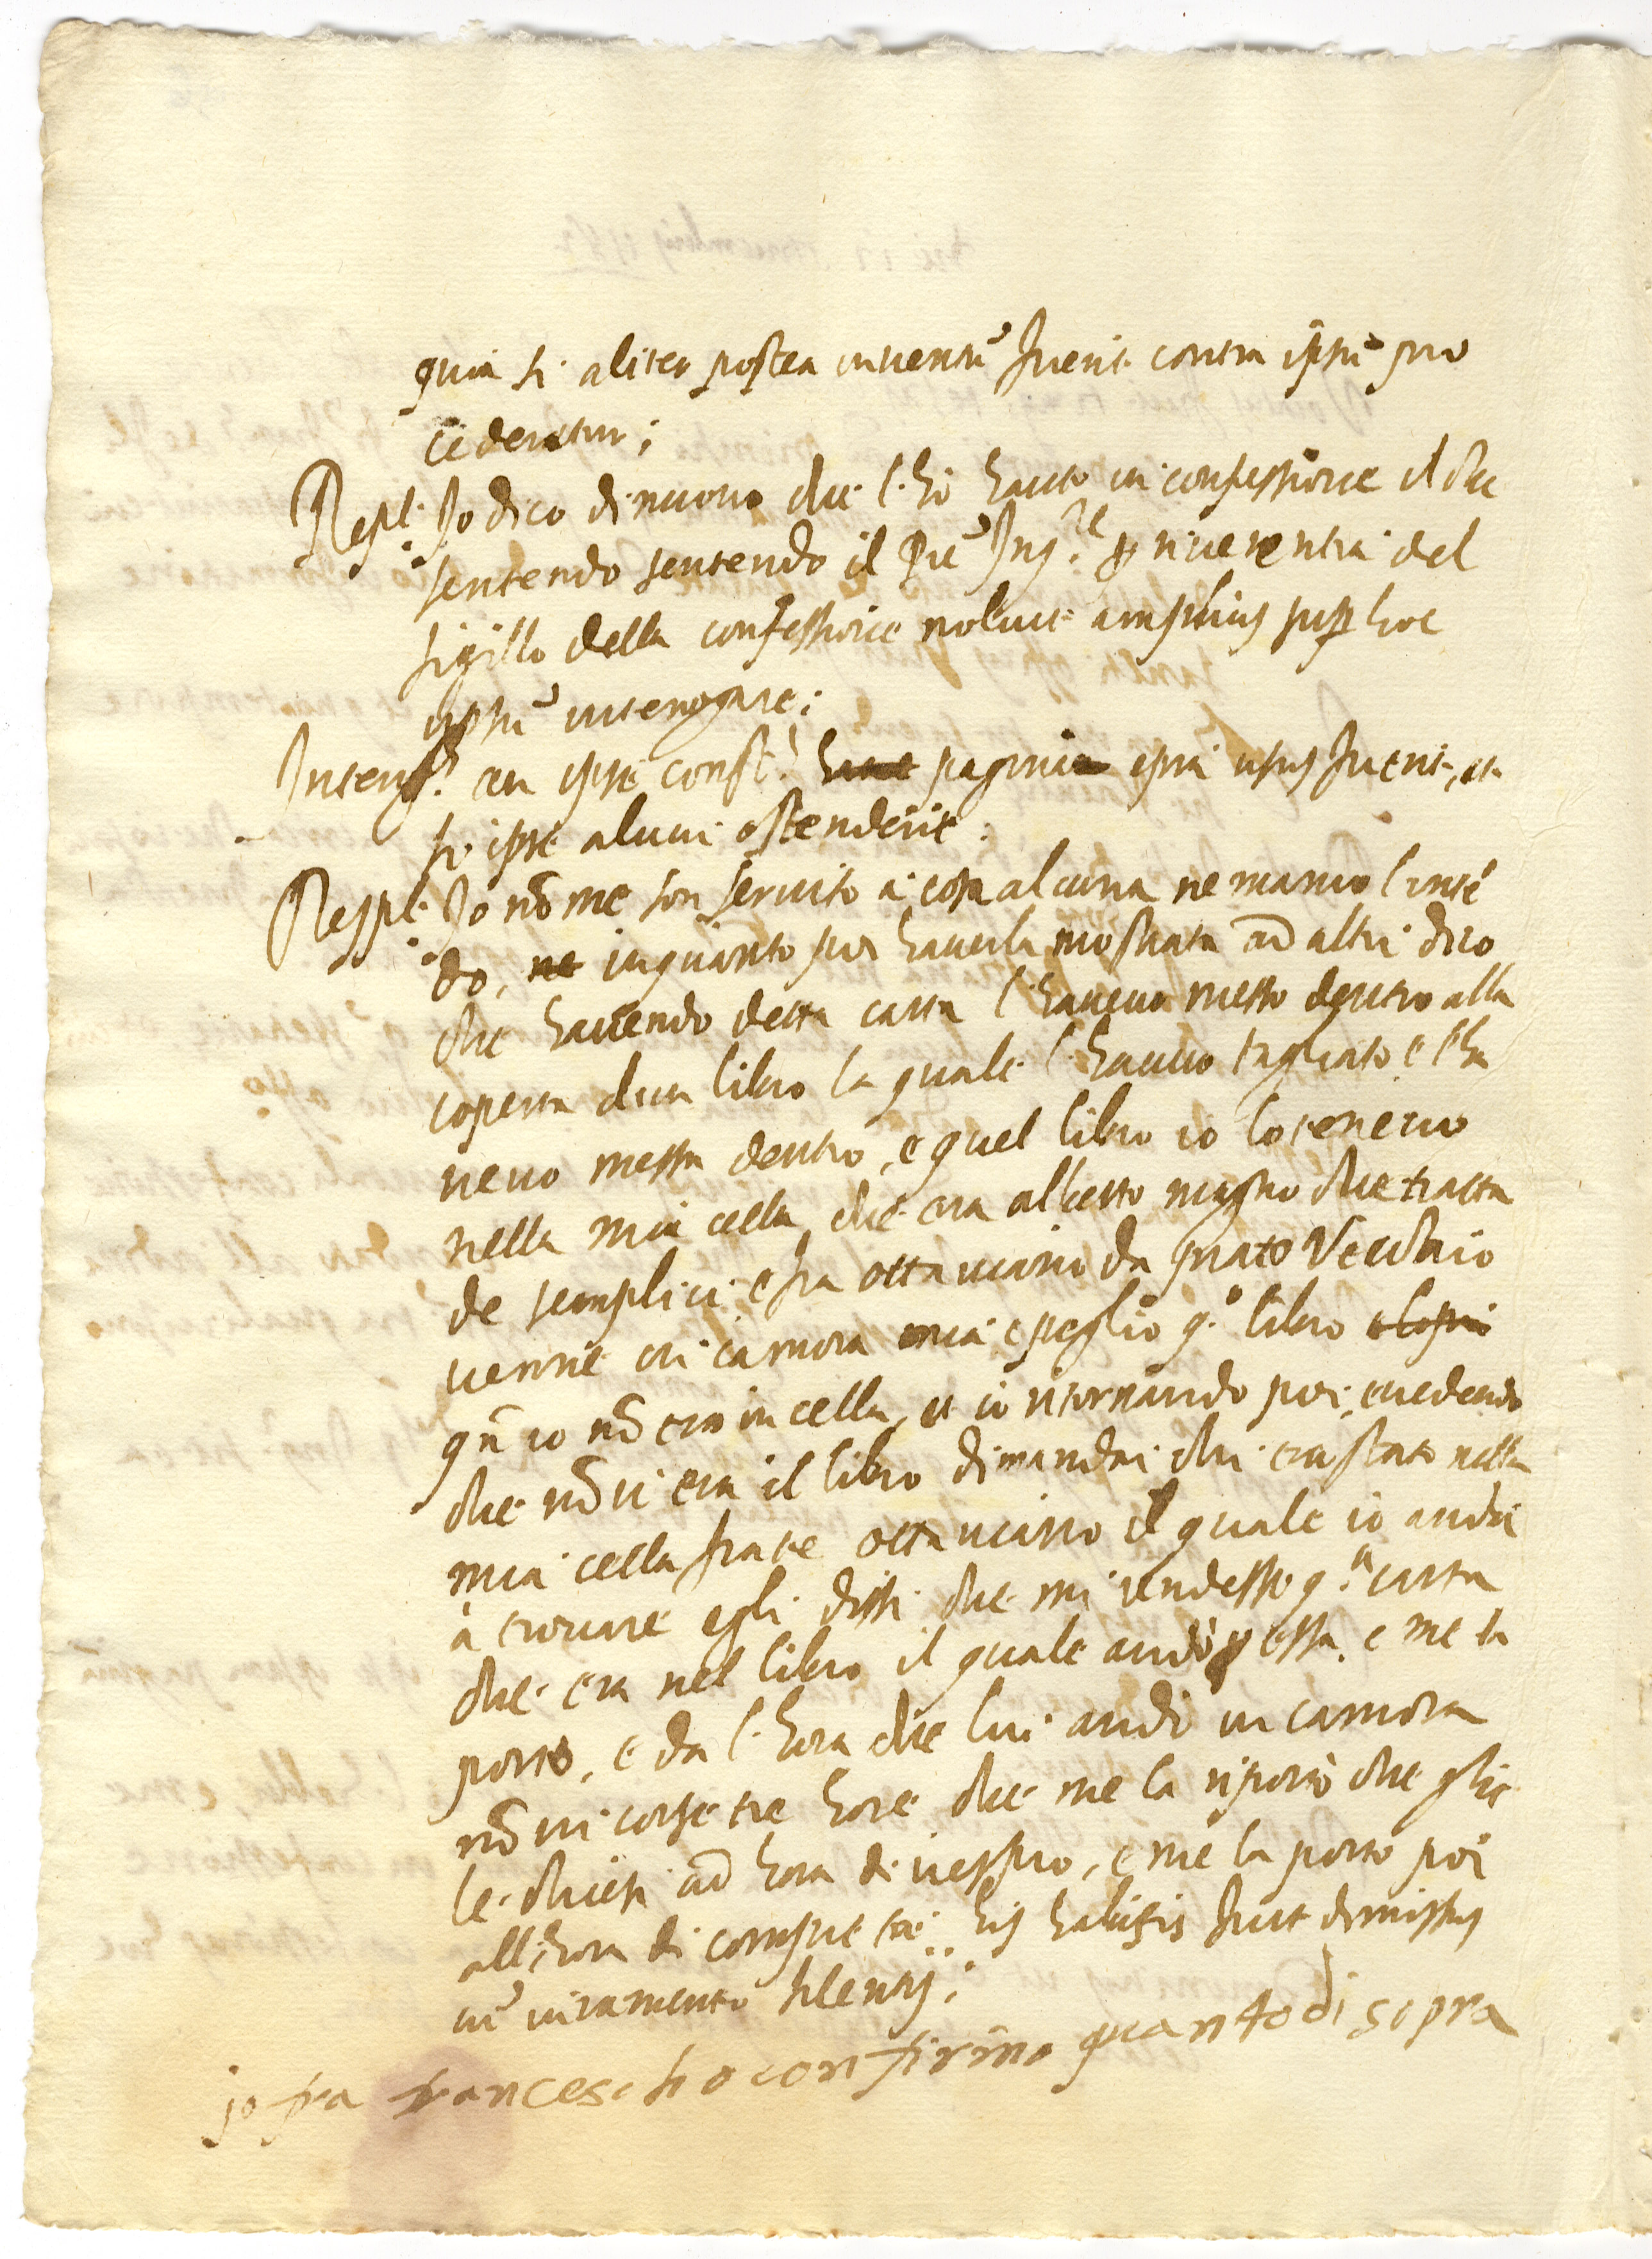 quia si aliter postea inventũ fuerit contra ipsũ pro
cederetur;
Respt. Io dico di nuovo che l'hò hauto in confessione il che
sentendo sentendo il Prẽ Inq.re p riverentia del
sigillo della confessione noluit amplius sup hoc
ipsũ interrogare;
Interr.s an ipse const.s hanc pagina ipsa usus fuerit, et
si ipse alicui ostenderit:
Respt. Io nõ me son servito a cosa alcuna ne manco l'inté
do, ne inquanto poi haverla mostrata ad altri dico
che havendo detta carta l'havevo messo dentro alla
coperta dun libro la quale l'havevo tagliato e l'ha
vevo messa dentro, e quel libro io lo tenevo
nella mia cella, che era alberto magno che tratta
de semplici e fra ottaviano da prato Vecchio
venne in camora mia e peglio q.o libro
qñ io nõ ero in cella, et io ritornando poi, e vedendo
che nõ vi era il libro dimandai chi era stato nella
mia cella frate ottaviano il quale io andai
à trovare e gli dissi che mi rendesse q.a carta
che era nel libro il quale andò p essa, e me la
porto, e da l'hora che lui andò in camora
nõ vi corse tre hore che me la riportò che glie
le chiesi ad hora di vespro, e me la porto poi
all'hora di compieta; his habitis fuit dimissus
cũ iuramento silentij;
io fra francescho confirmo quanto di sopra